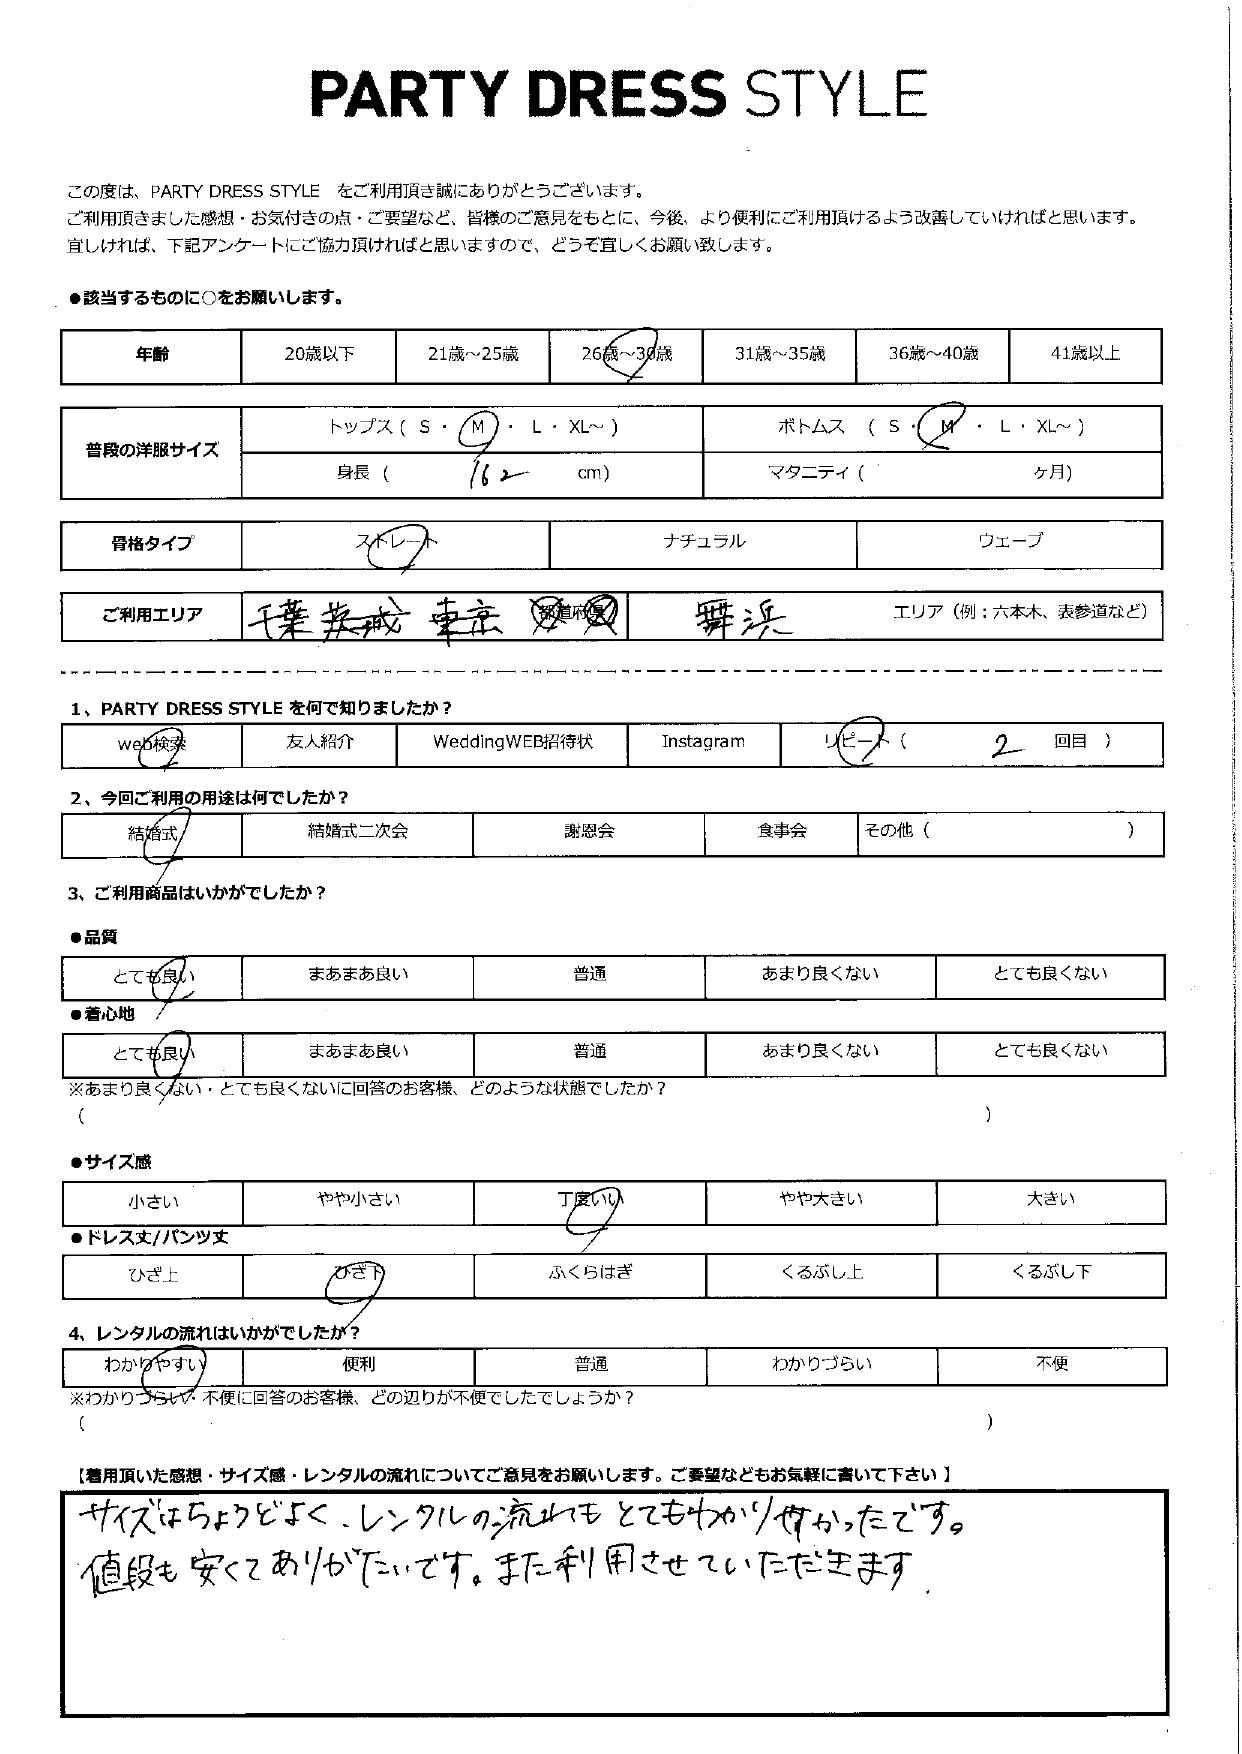 PARTY DRESS STYLE
この度は、PARTY DRESS STYLE をご利用頂き誠にありがとうございます。
ご利用頂きました感想・お気付きの点・ご要望など、皆様のご意見をもとに、今後、より便利にご利用頂けるよう改善していければと思います。
宜しければ、下記アンケートにご協力頂ければと思いますので、どうぞ宜しくお願い致します。
●該当するものに○をお願いします。
年齢 20歳以下 21歳～25歳 26歳～30歳 31歳～35歳 36歳～40歳 41歳以上
普段の洋服サイズ トップス ( S ・ M ・ L ・ XL～ ) ボトムス ( S ・ M ・ L ・ XL～ )
身長 ( 162 cm) マタニティ ( ヶ月)
骨格タイプ ストレート ナチュラル ウェーブ
ご利用エリア 千葉 茨城 東京 都道府県 舞浜 エリア（例：六本木、表参道など）
1、PARTY DRESS STYLE を何で知りましたか？
web検索 友人紹介 WeddingWEB招待状 Instagram リピート ( 2 回目 )
2、今回ご利用の用途は何でしたか？
結婚式 結婚式二次会 謝恩会 食事会 その他 ( )
3、ご利用商品はいかがでしたか？
●品質
とても良い まあまあ良い 普通 あまり良くない とても良くない
●着心地
とても良い まあまあ良い 普通 あまり良くない とても良くない
※あまり良くない・とても良くないに回答のお客様、どのような状態でしたか？
( )
●サイズ感
小さい やや小さい 丁度いい やや大きい 大きい
●ドレス丈/パンツ丈
ひざ上 ひざ下 ふくらはぎ くるぶし上 くるぶし下
4、レンタルの流れはいかがでしたか？
わかりやすい 便利 普通 わかりづらい 不便
※わかりづらい・不便に回答のお客様、どの辺りが不便でしたでしょうか？
( )
【着用頂いた感想・サイズ感・レンタルの流れについてご意見をお願いします。ご要望などもお気軽に書いて下さい】
サイズはちょうどよく、レンタルの流れもとてもわかり易すかったです。
値段も安くてありがたいです。また利用させていただきます.